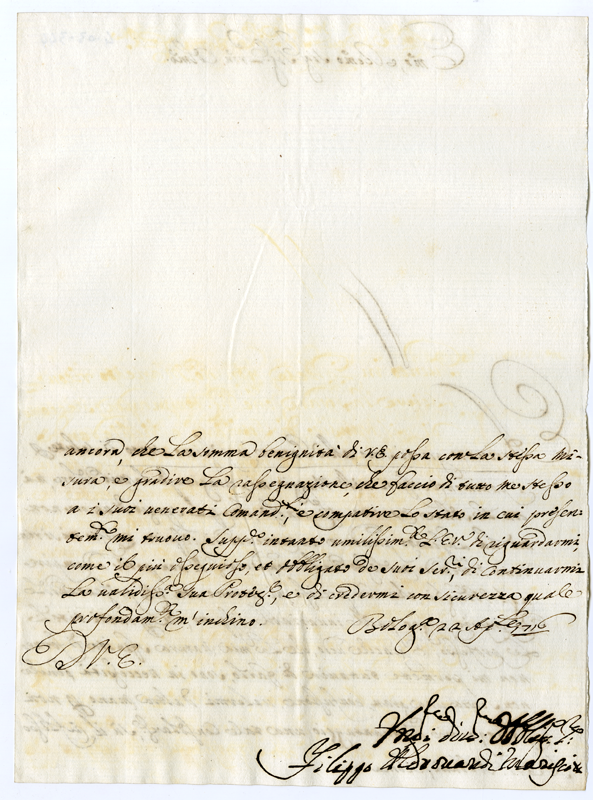 ancora, che La somma benignità di V.E. possa con La stessa mi-
sura, e gradire La rassegnazione, che faccio di tutto me stesso
a i suoi venerati Comand.ti, e compatire Lo stato in cui presen-
tem.te mi truovo. Supp.co intanto umilissim.te L'E.V. di riguardarmi,
come il più ossequioso, et obbligato de suoi Ser.ri, di Continuarmi
La validiss.a Sua Protez.e, e di credermi con sicurezza quale
profondam.te m'inchino. Bolog.a 22 Ap.le 1716
D. V. E.
Um.o Dev.o Obblig.o
Filippo Aldrovandi Marescotti